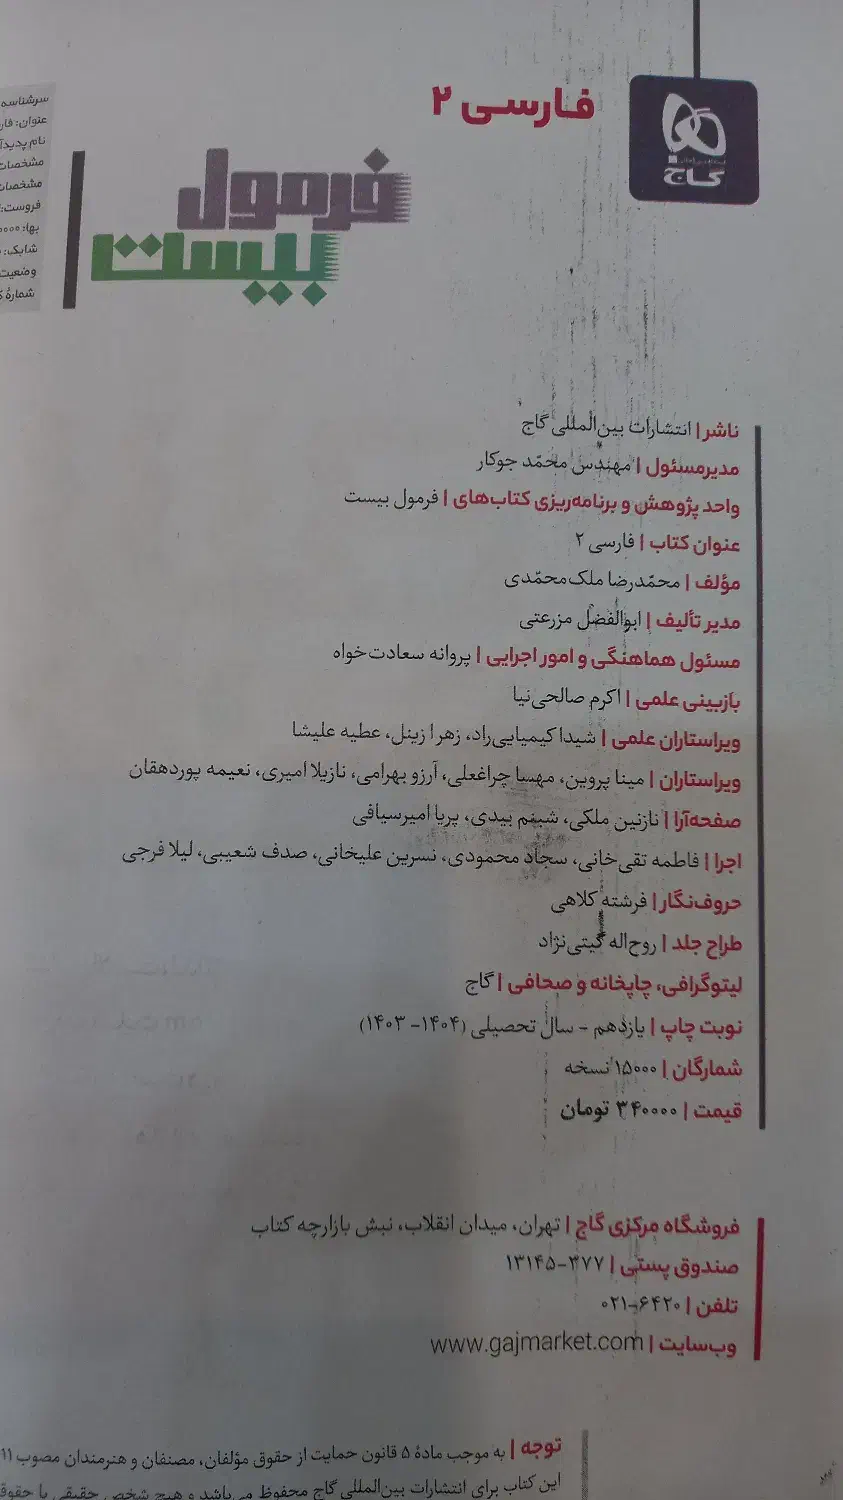 گاج
فارسی ۲
فرمول
بیست
سرشناسه
عنوان: فار
نام پدیدآ
مشخصات
مشخصات
فروست:
بها: ۰۰۰۰
شابک:
وضعیت
شمارهٔ ک
ناشر | انتشارات بین‌المللی گاج
مدیرمسئول | مهندس محمّد جوکار
واحد پژوهش و برنامه‌ریزی کتاب‌های | فرمول بیست
عنوان کتاب | فارسی ۲
مؤلف | محمّدرضا ملک‌محمّدی
مدیر تألیف | ابوالفضل مزرعتی
مسئول هماهنگی و امور اجرایی | پروانه سعادت‌خواه
بازبینی علمی | اکرم صالحی‌نیا
ویراستاران علمی | شیدا کیمیایی‌راد، زهرا زینل، عطیه علیشا
ویراستاران | مینا پروین، مهسا چراغعلی، آرزو بهرامی، نازیلا امیری، نعیمه پوردهقان
صفحه‌آرا | نازنین ملکی، شبنم بیدی، پریا امیرسیافی
اجرا | فاطمه تقی‌خانی، سجاد محمودی، نسرین علیخانی، صدف شعیبی، لیلا فرجی
حروف‌نگار | فرشته کلاهی
طراح جلد | روح‌اله گیتی‌نژاد
لیتوگرافی، چاپخانه و صحافی | گاج
نوبت چاپ | یازدهم - سال تحصیلی (۱۴۰۴- ۱۴۰۳)
شمارگان | ۱۵۰۰۰ نسخه
قیمت | ۳۴۰۰۰۰ تومان
فروشگاه مرکزی گاج | تهران، میدان انقلاب، نبش بازارچه کتاب
صندوق پستی | ۳۷۷-۱۳۱۴۵
تلفن | ۰۲۱-۶۴۲۰
وب‌سایت | www.gajmarket.com
توجه | به موجب مادهٔ ۵ قانون حمایت از حقوق مؤلفان، مصنفان و هنرمندان مصوب ۱۱
این کتاب برای انتشارات بین‌المللی گاج محفوظ می‌باشد و هیچ شخص حقیقی یا حقوق